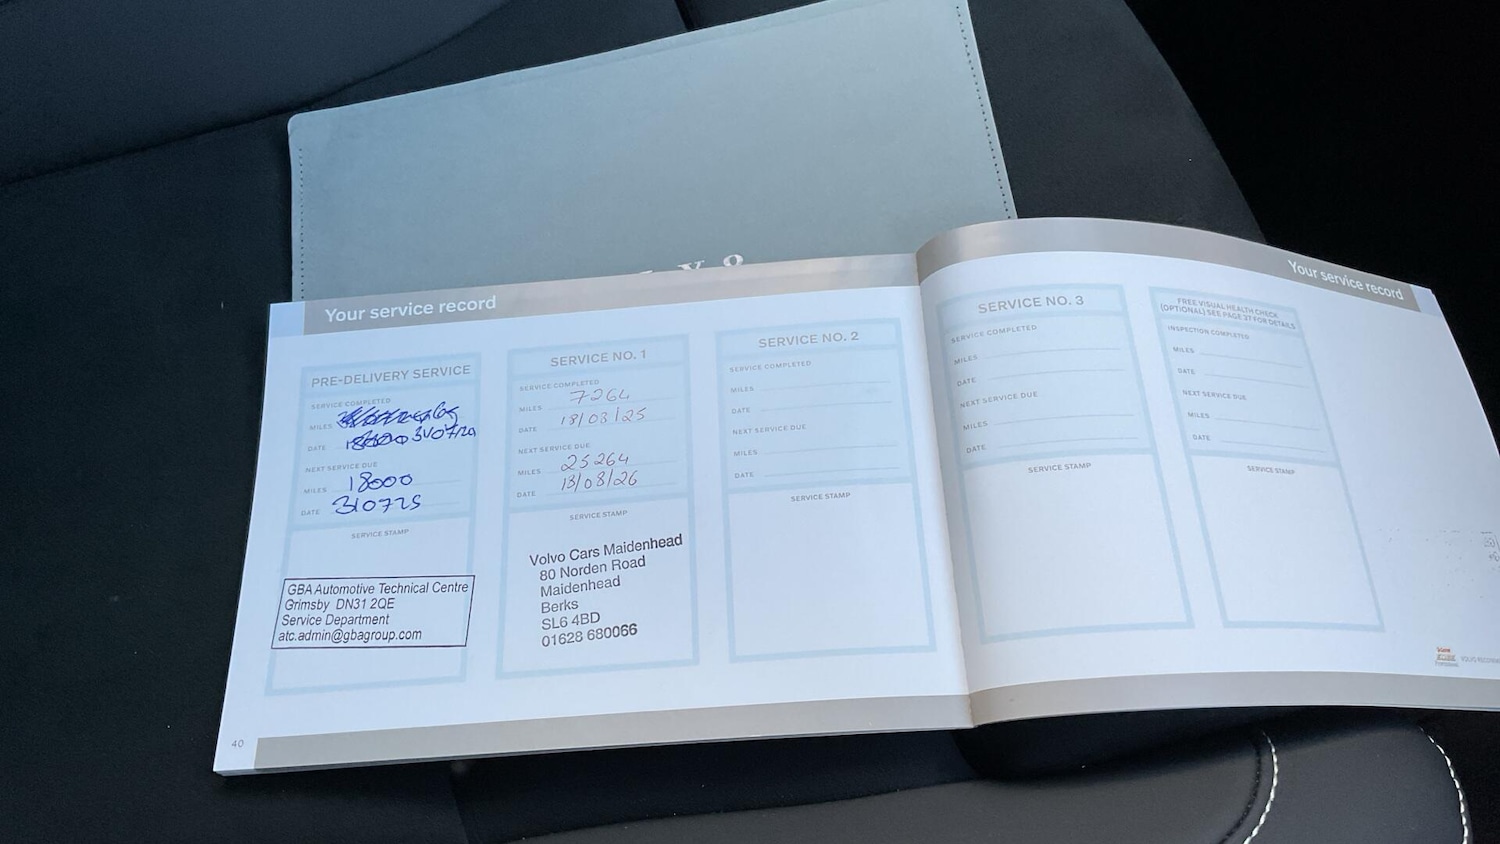 Your service record
PRE-DELIVERY SERVICE
SERVICE COMPLETED
MILES
DATE
NEXT SERVICE DUE
MILES 18000
DATE 310725
SERVICE STAMP
GBA Automotive Technical Centre
Grimsby DN31 2QE
Service Department
atc.admin@gbagroup.com
SERVICE NO. 1
SERVICE COMPLETED
MILES 7264
DATE 18/08/25
NEXT SERVICE DUE
MILES 25264
DATE 13/08/26
SERVICE STAMP
Volvo Cars Maidenhead
80 Norden Road
Maidenhead
Berks
SL6 4BD
01628 680066
SERVICE NO. 2
SERVICE COMPLETED
MILES
DATE
NEXT SERVICE DUE
MILES
DATE
SERVICE STAMP
40
Your service record
SERVICE NO. 3
SERVICE COMPLETED
MILES
DATE
NEXT SERVICE DUE
MILES
DATE
SERVICE STAMP
FREE VISUAL HEALTH CHECK
(OPTIONAL) SEE PAGE 27 FOR DETAILS
INSPECTION COMPLETED
MILES
DATE
NEXT SERVICE DUE
MILES
DATE
SERVICE STAMP